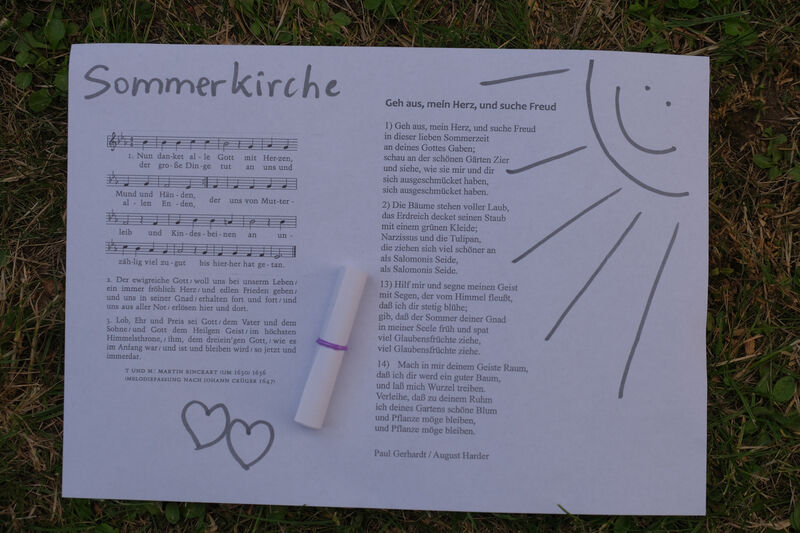 Sommerkirche
1. Nun dan-ket al-le Gott mit Her-zen,
der gro-ße Din-ge tut an uns und
Mund und Hän-den, der uns von Mut-ter-
al-len En-den,
leib und Kin-des-bei-nen an un-
zäh-lig viel zu-gut bis hier-her hat ge-tan.
2. Der ewigreiche Gott / woll uns bei unserm Leben /
ein immer fröhlich Herz / und edlen Frieden geben /
und uns in seiner Gnad / erhalten fort und fort / und
uns aus aller Not / erlösen hier und dort.
3. Lob, Ehr und Preis sei Gott / dem Vater und dem
Sohne / und Gott dem Heilgen Geist / im höchsten
Himmelsthrone, / ihm, dem dreiein'gen Gott, / wie es
im Anfang war / und ist und bleiben wird / so jetzt und
immerdar.
T UND M: MARTIN RINCKART (UM 1630) 1636
(MELODIEFASSUNG NACH JOHANN CRÜGER 1647)
Geh aus, mein Herz, und suche Freud
1) Geh aus, mein Herz, und suche Freud
in dieser lieben Sommerzeit
an deines Gottes Gaben;
schau an der schönen Gärten Zier
und siehe, wie sie mir und dir
sich ausgeschmücket haben,
sich ausgeschmücket haben.
2) Die Bäume stehen voller Laub,
das Erdreich decket seinen Staub
mit einem grünen Kleide;
Narzissus und die Tulipan,
die ziehen sich viel schöner an
als Salomonis Seide,
als Salomonis Seide.
13) Hilf mir und segne meinen Geist
mit Segen, der vom Himmel fleußt,
daß ich dir stetig blühe;
gib, daß der Sommer deiner Gnad
in meiner Seele früh und spat
viel Glaubensfrüchte ziehe,
viel Glaubensfrüchte ziehe.
14) Mach in mir deinem Geiste Raum,
daß ich dir werd ein guter Baum,
und laß mich Wurzel treiben.
Verleihe, daß zu deinem Ruhm
ich deines Gartens schöne Blum
und Pflanze möge bleiben,
und Pflanze möge bleiben.
Paul Gerhardt / August Harder